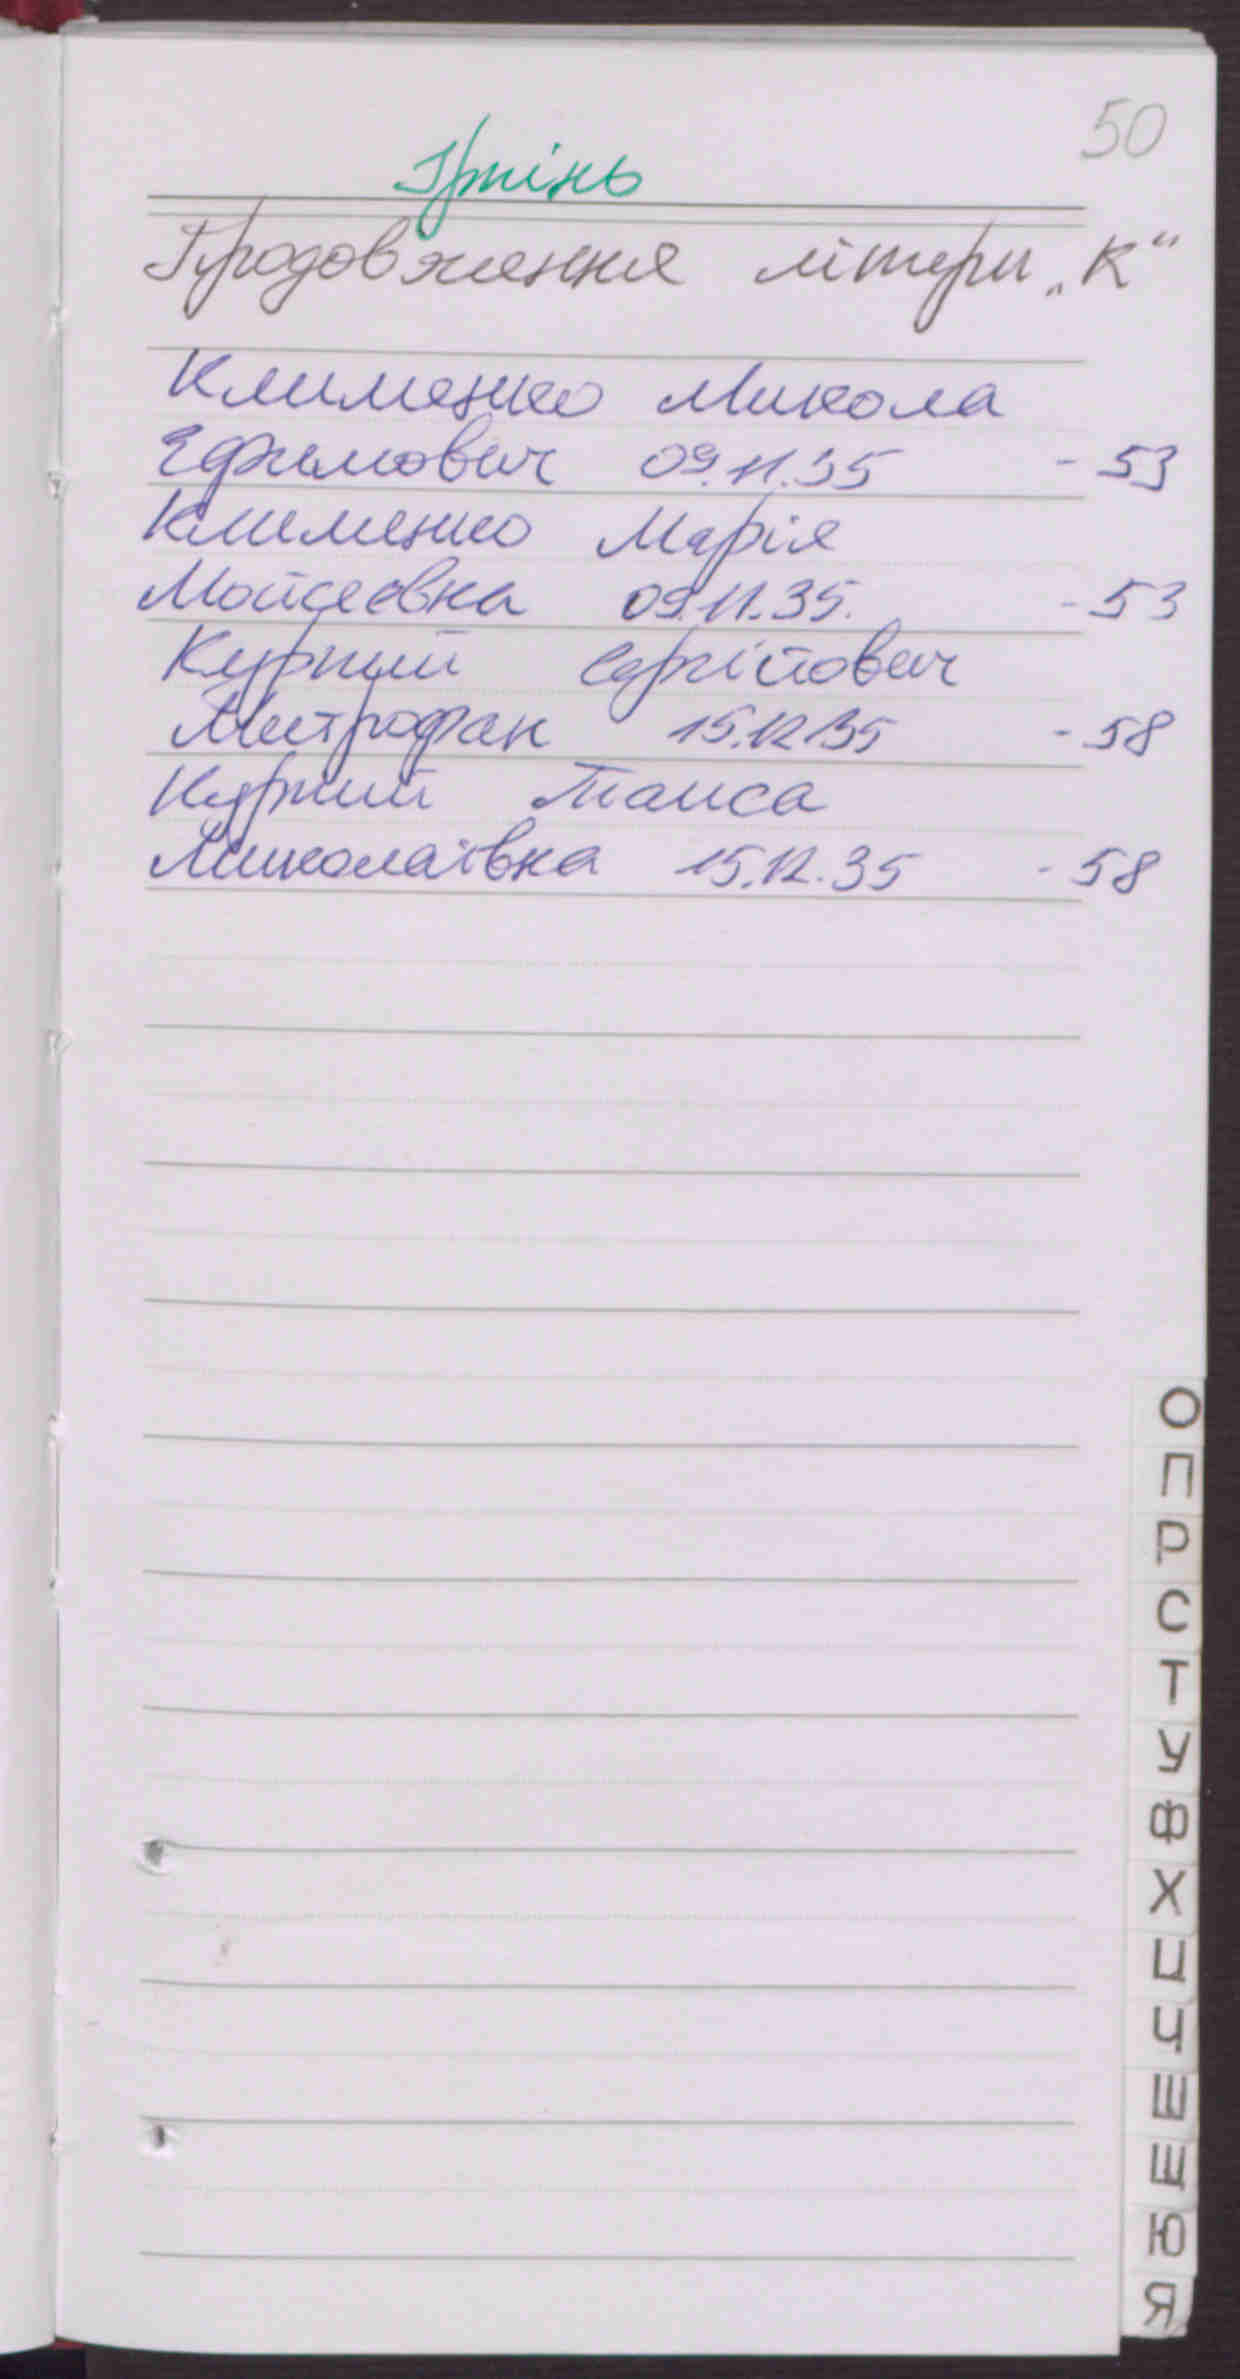 50
Ірпінь
Продовження літери „К"
Клименко Микола
Ефимович 09.11.35 - 53
Клименко Марія
Мойсеєвна 09.11.35. - 53
Курпий Сергійович
Митрофан 15.12.35 - 58
Курпий Таиса
Миколаївна 15.12.35 - 58
О
П
Р
С
Т
У
Ф
Х
Ц
Ч
Ш
Щ
Ю
Я